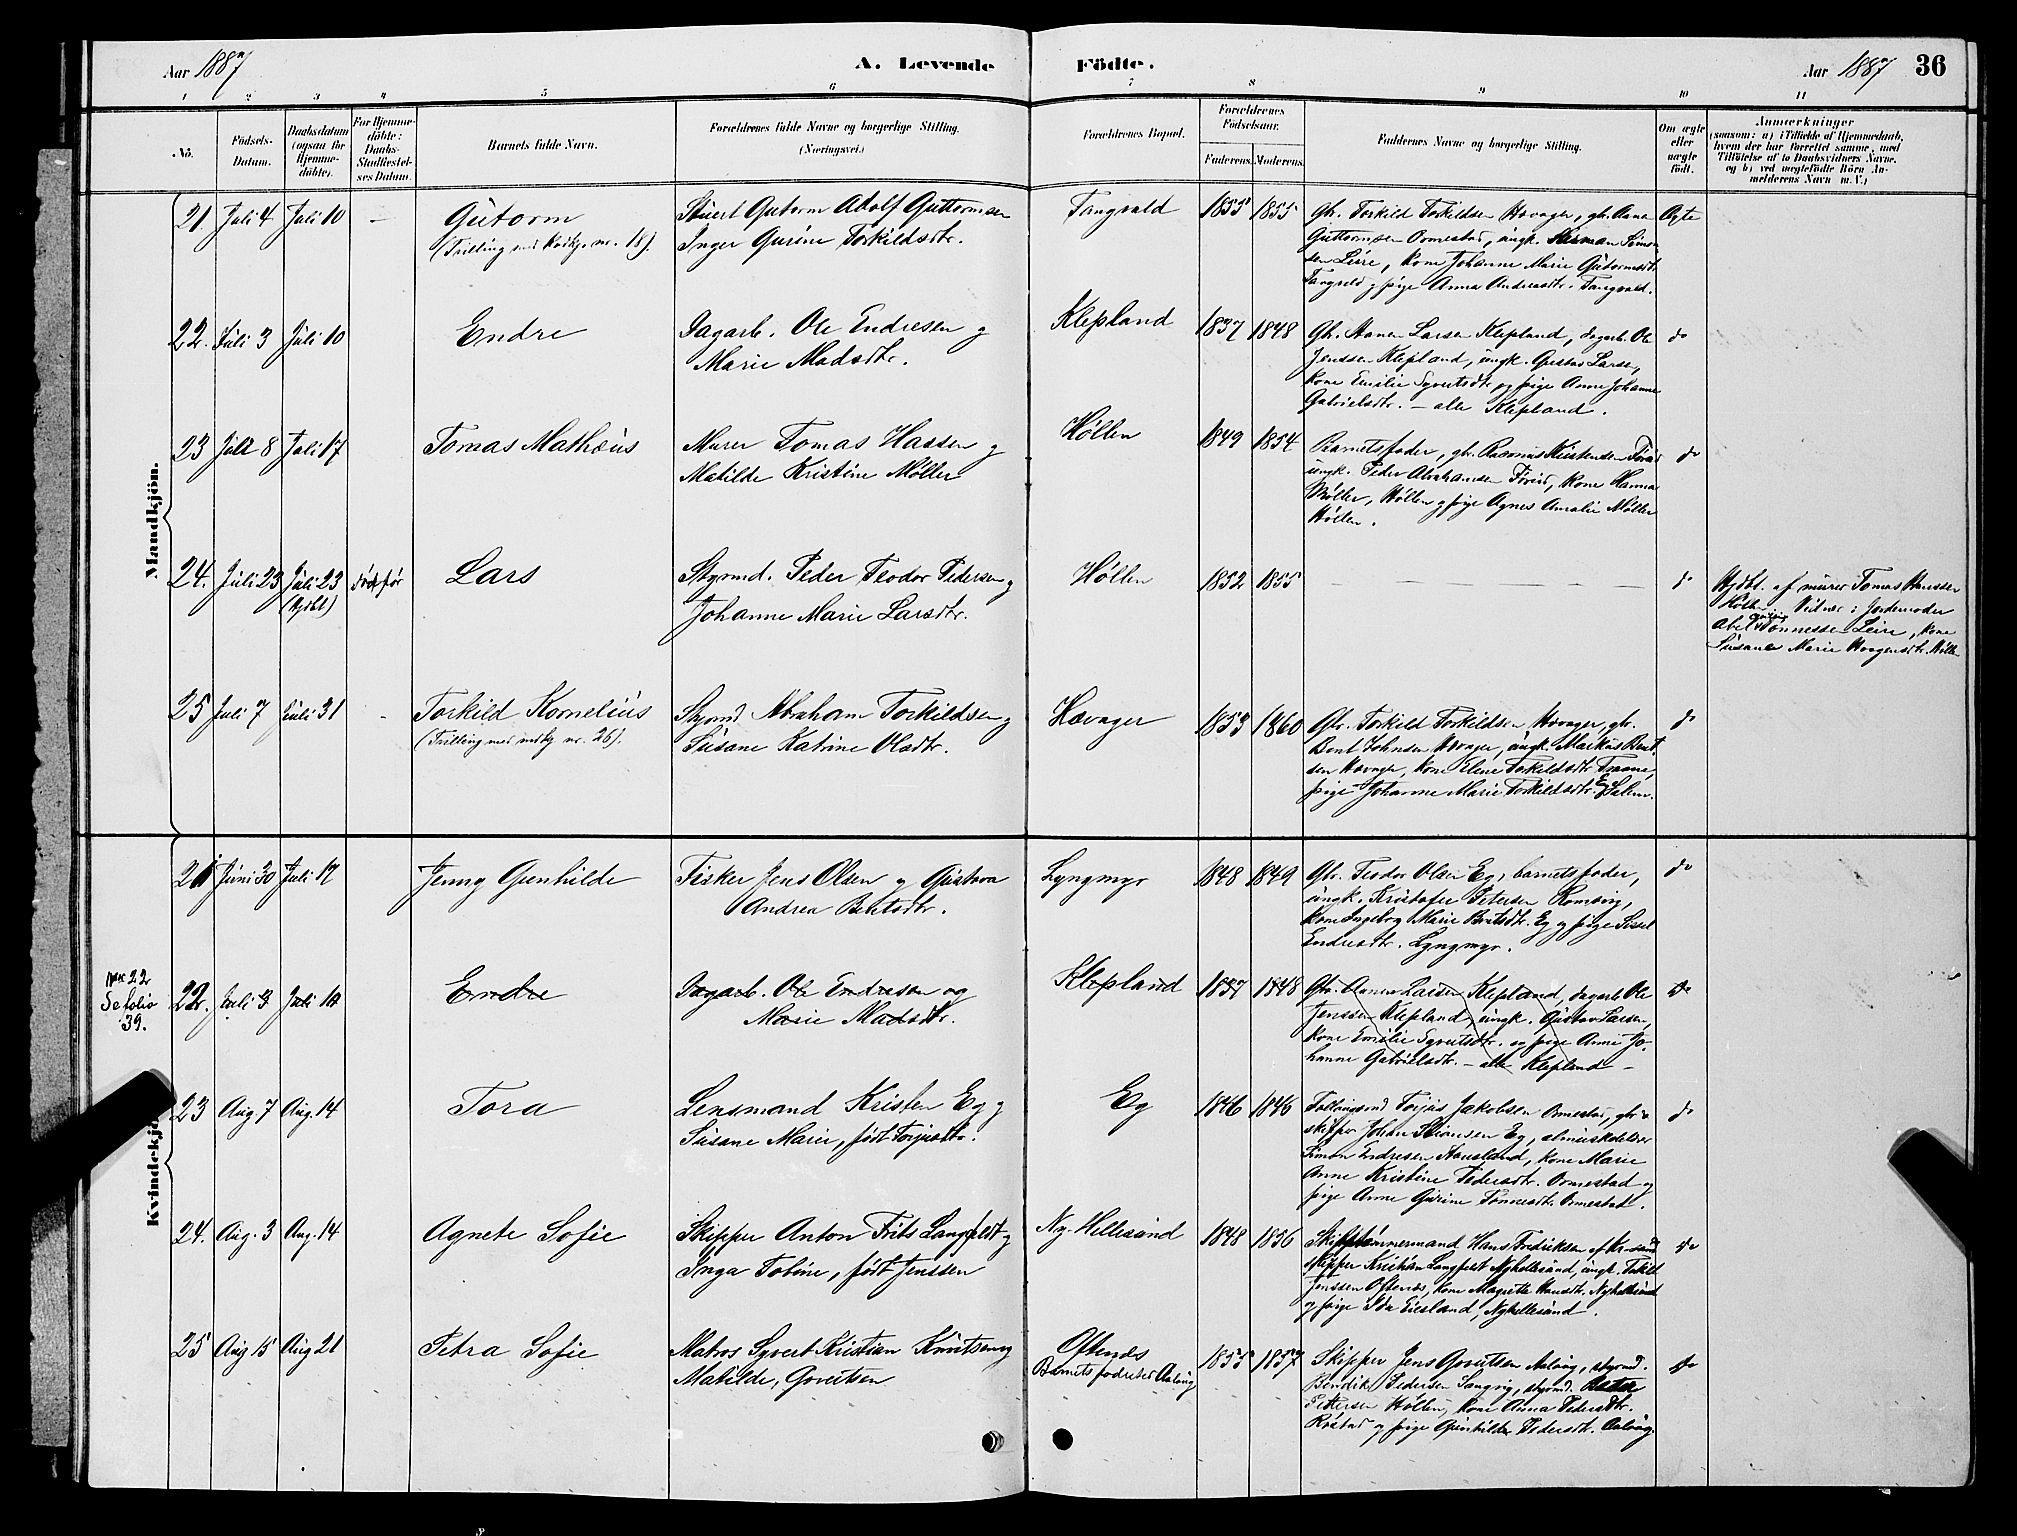 Aar 1887
A. Levende Födte.
Aar 1887
36
1 2 3 4 5 6 7 8 9 10 11
No.
Födsels-
Datum.
Daabsdatum
(ogsaa for
Hjemme-
döbte).
For Hjemme-
döbte:
Daabs-
Stadfæstel-
ses Datum.
Barnets fulde Navn.
Forældrenes fulde Navne og borgerlige Stilling.
(Næringsvei.)
Forældrenes Bopæl.
Forældrenes
Födselsaar.
Faderens. Moderens.
Faddernes Navne og borgerlige Stilling.
Om ægte
eller
uægte
födt.
Anmærkninger
(saasom: a) i Tilfælde af Hjemmedaab,
hvem der har forrettet samme, med
Tilföielse af to Daabsvidners Navne,
og b) ved uægtefödte Börn An-
melderens Navn m. V.)
Mandkjön.
21 Juli 4 Juli 10 –
Gutorm
(Trilling med kvkj. nr. 18).
Stuert Gutorm Adolf Guttormsen
Inger Gurine Torkildsdtr.
Tangvald
1855 1855
Gbr. Torkild Torkildsen Hævager, gbr. Aane
Guttormsen Ormestad, ungk. Herman Simon-
sen Leire, kone Johanne Marie Gutormsdtr.
Tangvald og pige Anna Andersdtr. Tangvald.
Ægte
22. Juli 3 Juli 10
Endre
Dagarb. Ole Endresen og
Marie Madsdtr.
Klepland
1837 1848
Gbr. Aanen Larsen Klepland, dagarb. Ole
Jenssen Klepland, ungk. Gustav Larsen,
kone Emilie Syvertsdtr. og pige Anne Johanne
Gabrielsdtr. – alle Klepland.
do
23 Juli 8 Juli 17
Tomas Mathæus
Murer Tomas Hansen og
Matilde Kristine Møller
Høllen
1849 1854
Barnets fader, gbr. Rasmus Kristensen
ungk. Peder Abrahamsen, kone Hanna
Møller, Høllen og pige Agnes Amalie Møller
Høllen.
do
24. Juli 23 Juli 23
(Hjdbt.)
Død før
Lars
Styrmd. Peder Teodor Pedersen og
Johanne Marie Larsdtr.
Høllen
1852 1855
do
Hjdbt. af murer Tomas Hanssen
Høllen. Vidner: Jordemoder
Abel Tønnessen Leire, kone
Susanne Marie Haagensdtr. Høllen
25 Juli 7 Juli 31 –
Torkild Kornelius
(Tvilling med indkj. nr. 26).
Styrmd. Abraham Torkildsen og
Susane Katrine Olsdtr.
Hævager
1853 1860
Gbr. Torkild Torkildsen Hævager, gbr.
Bent Johnsen Hævager, ungk. Markus Bent-
sen Hævager, kone Elene Torkildsdtr. Traane,
pige Johanne Marie Torkildsdtr.
do
Kvindekjön.
21 Juni 30 Juli 17
Jenny Gunhilde
Fisker Jens Olsen og Gustava
Andrea Bentsdtr.
Lyngmyr
1848 1849
Gbr. Teodor Olsen Eg, barnets fader,
ungk. Kristofer Petersen Romsvig,
kone Ingeborg Marie Bentsdtr. Eg og pige Sissel
Endresdtr. Lyngmyr.
do
No. 22
Se folio
39.
22. Juli 3 Juli 10
Endre
Dagarb. Ole Endresen og
Marie Madsdtr.
Klepland
1837 1848
Gbr. Aanen Larsen Klepland, dagarb. Ole
Jenssen Klepland, ungk. Gustav Larsen,
kone Emilie Syvertsdtr. og pige Anne Jo-
hanne Gabrielsdtr. – alle Klepland –
do
23 Aug. 7 Aug. 14
Tora
Lensmand Kristen Eg og
Susane Marie, født Torjusdtr.
Eg
1846 1846
Torjus Jakobsen Ormestad, gbr. og
skipper Johan Eg,
Simon Endresen Stausland, kone Marie
Anne Kristine Pedersdtr. Ormestad og
pige Anne Gurine Tønnesdtr. Ormestad.
do
24. Aug. 3 Aug. 14
Agnete Sofie
Skipper Anton Frits Langfeldt og
Inga Tobine, født Jenssen
Ny-Hellesund
1848 1856
Skibstømmermand Hans Fredriksen af Kr-sand
skipper Kristian Langfelt Nyhellesund, ungk. Torkel
Jenssen Oftenes, kone Magrete Hansdtr. Nyhellesund
og pige Ida Eiesland, Nyhellesund.
do
25 Aug 15 Aug 21
Petra Sofie
Matros Syvert Kristian Knutsen og
Matilde, Govertsen
Oftenes
Barnets fødested Aalvig
1855 1857
Skipper Jens Govertsen Aalvig, styrmd.
Bendik Pedersen Langvig, styrmd. Peter
Pettersen Høllen, kone Anna Pedersdtr.
Røstad og pige Gunhilde Pedersdtr. Aalvig.
do